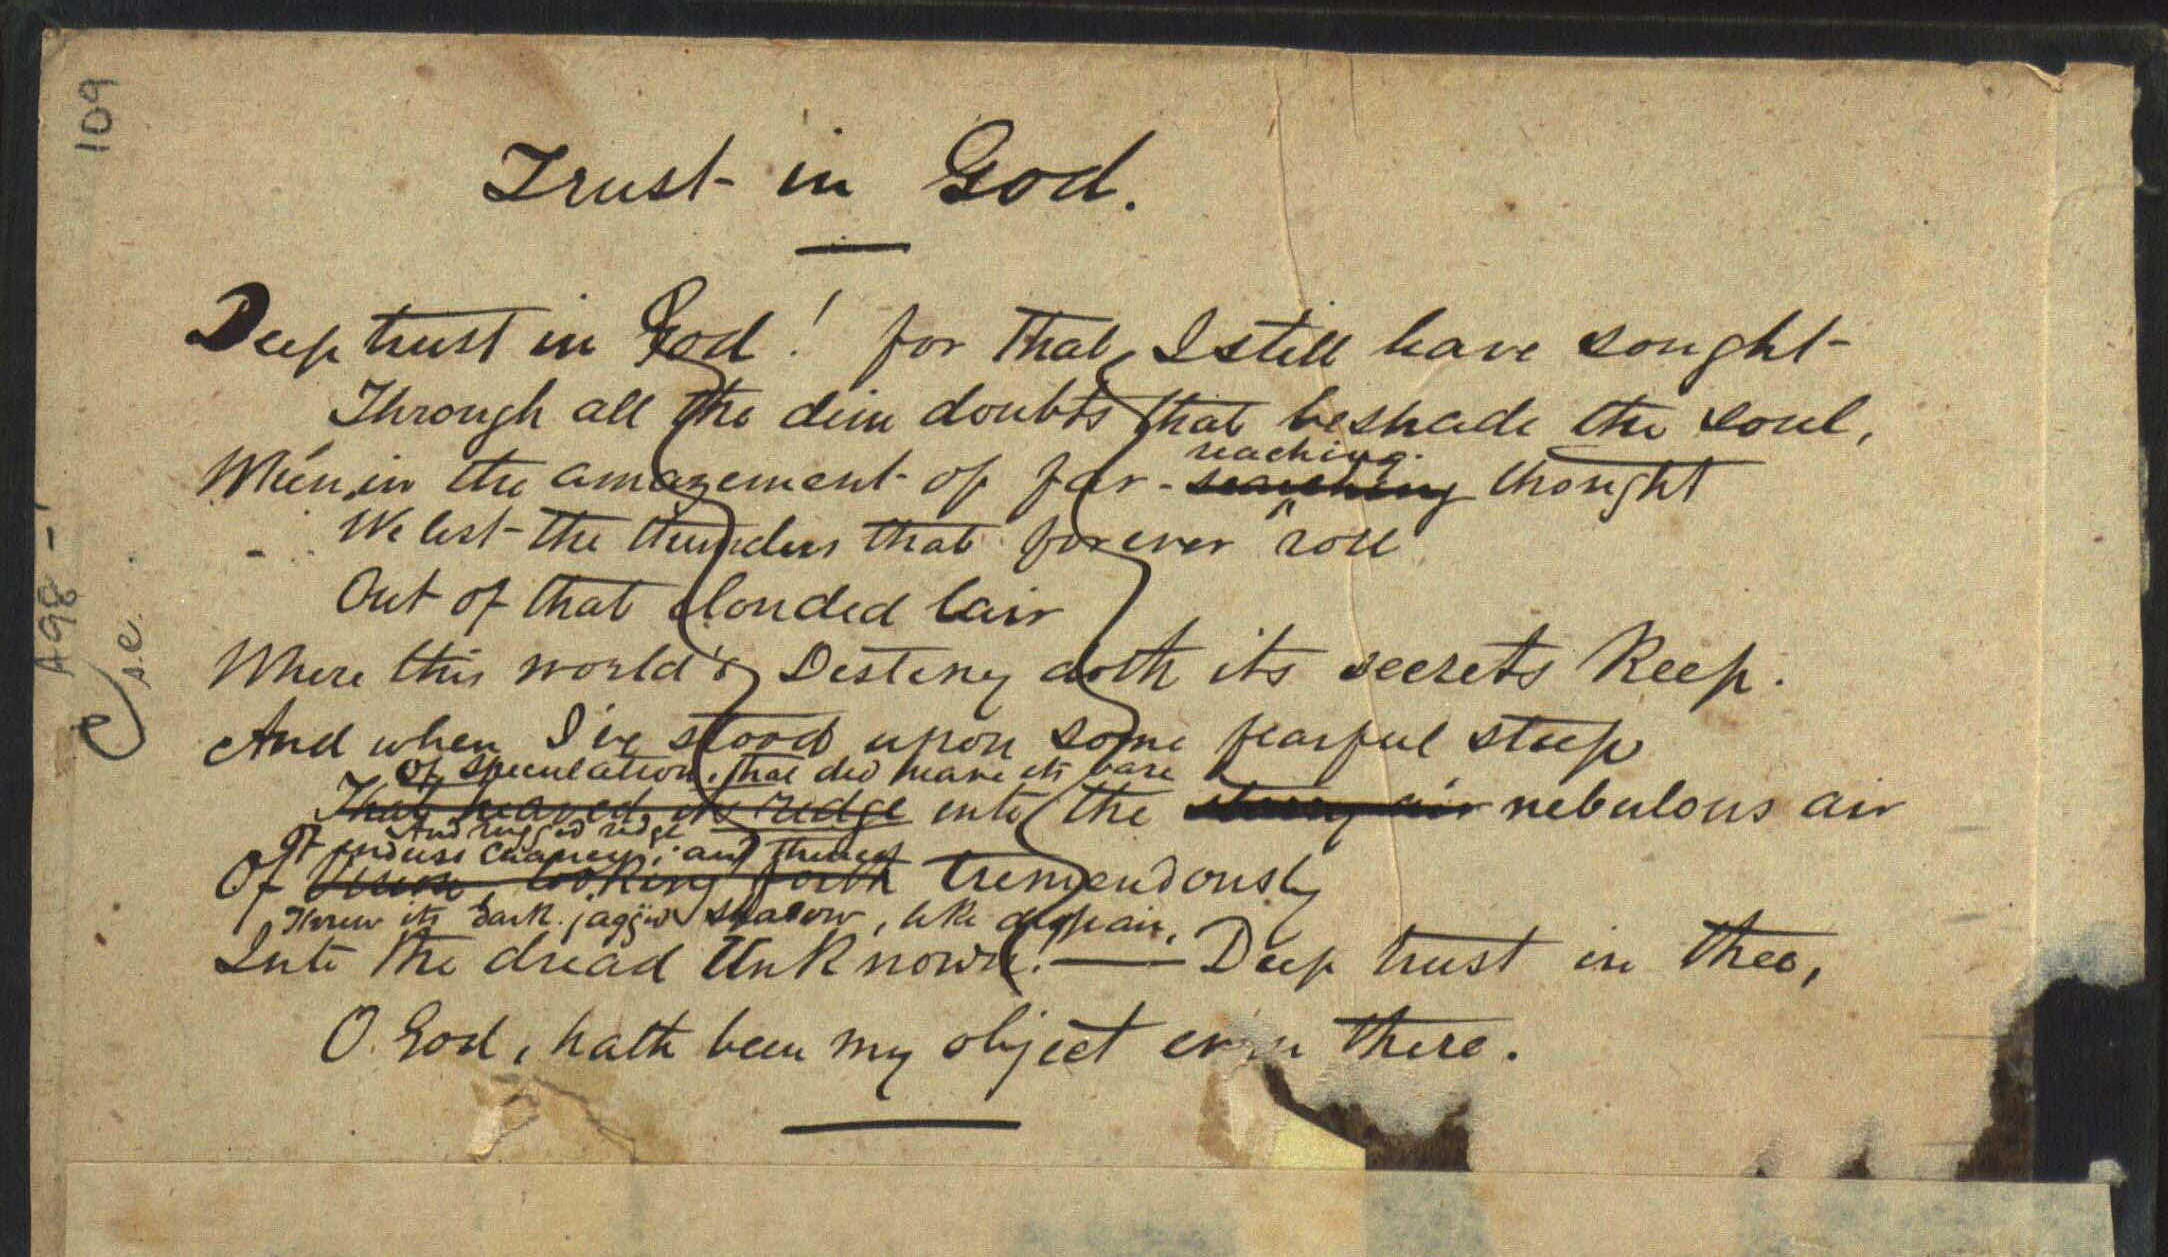 109
Trust in God.
Deep trust in God! for that, I still have sought
Through all the dim doubts that beshade the soul,
When, in the amazement of far-searching thought
reaching
We list the thunders that forever roll
Out of that clouded lair
Where this world's Destiny doth its secrets keep.
And when I've stood upon some fearful steep
Of speculation, that did heave its bare
That heaved its ridge into the starry air nebulous air
And rugged ridge
Of and thence
Of looking forth tremendously
Threw its dark jagged shadow, like despair,
Into the dread Unknown!—Deep trust in thee,
O God, hath been my object even there.
A98-1
s.e.